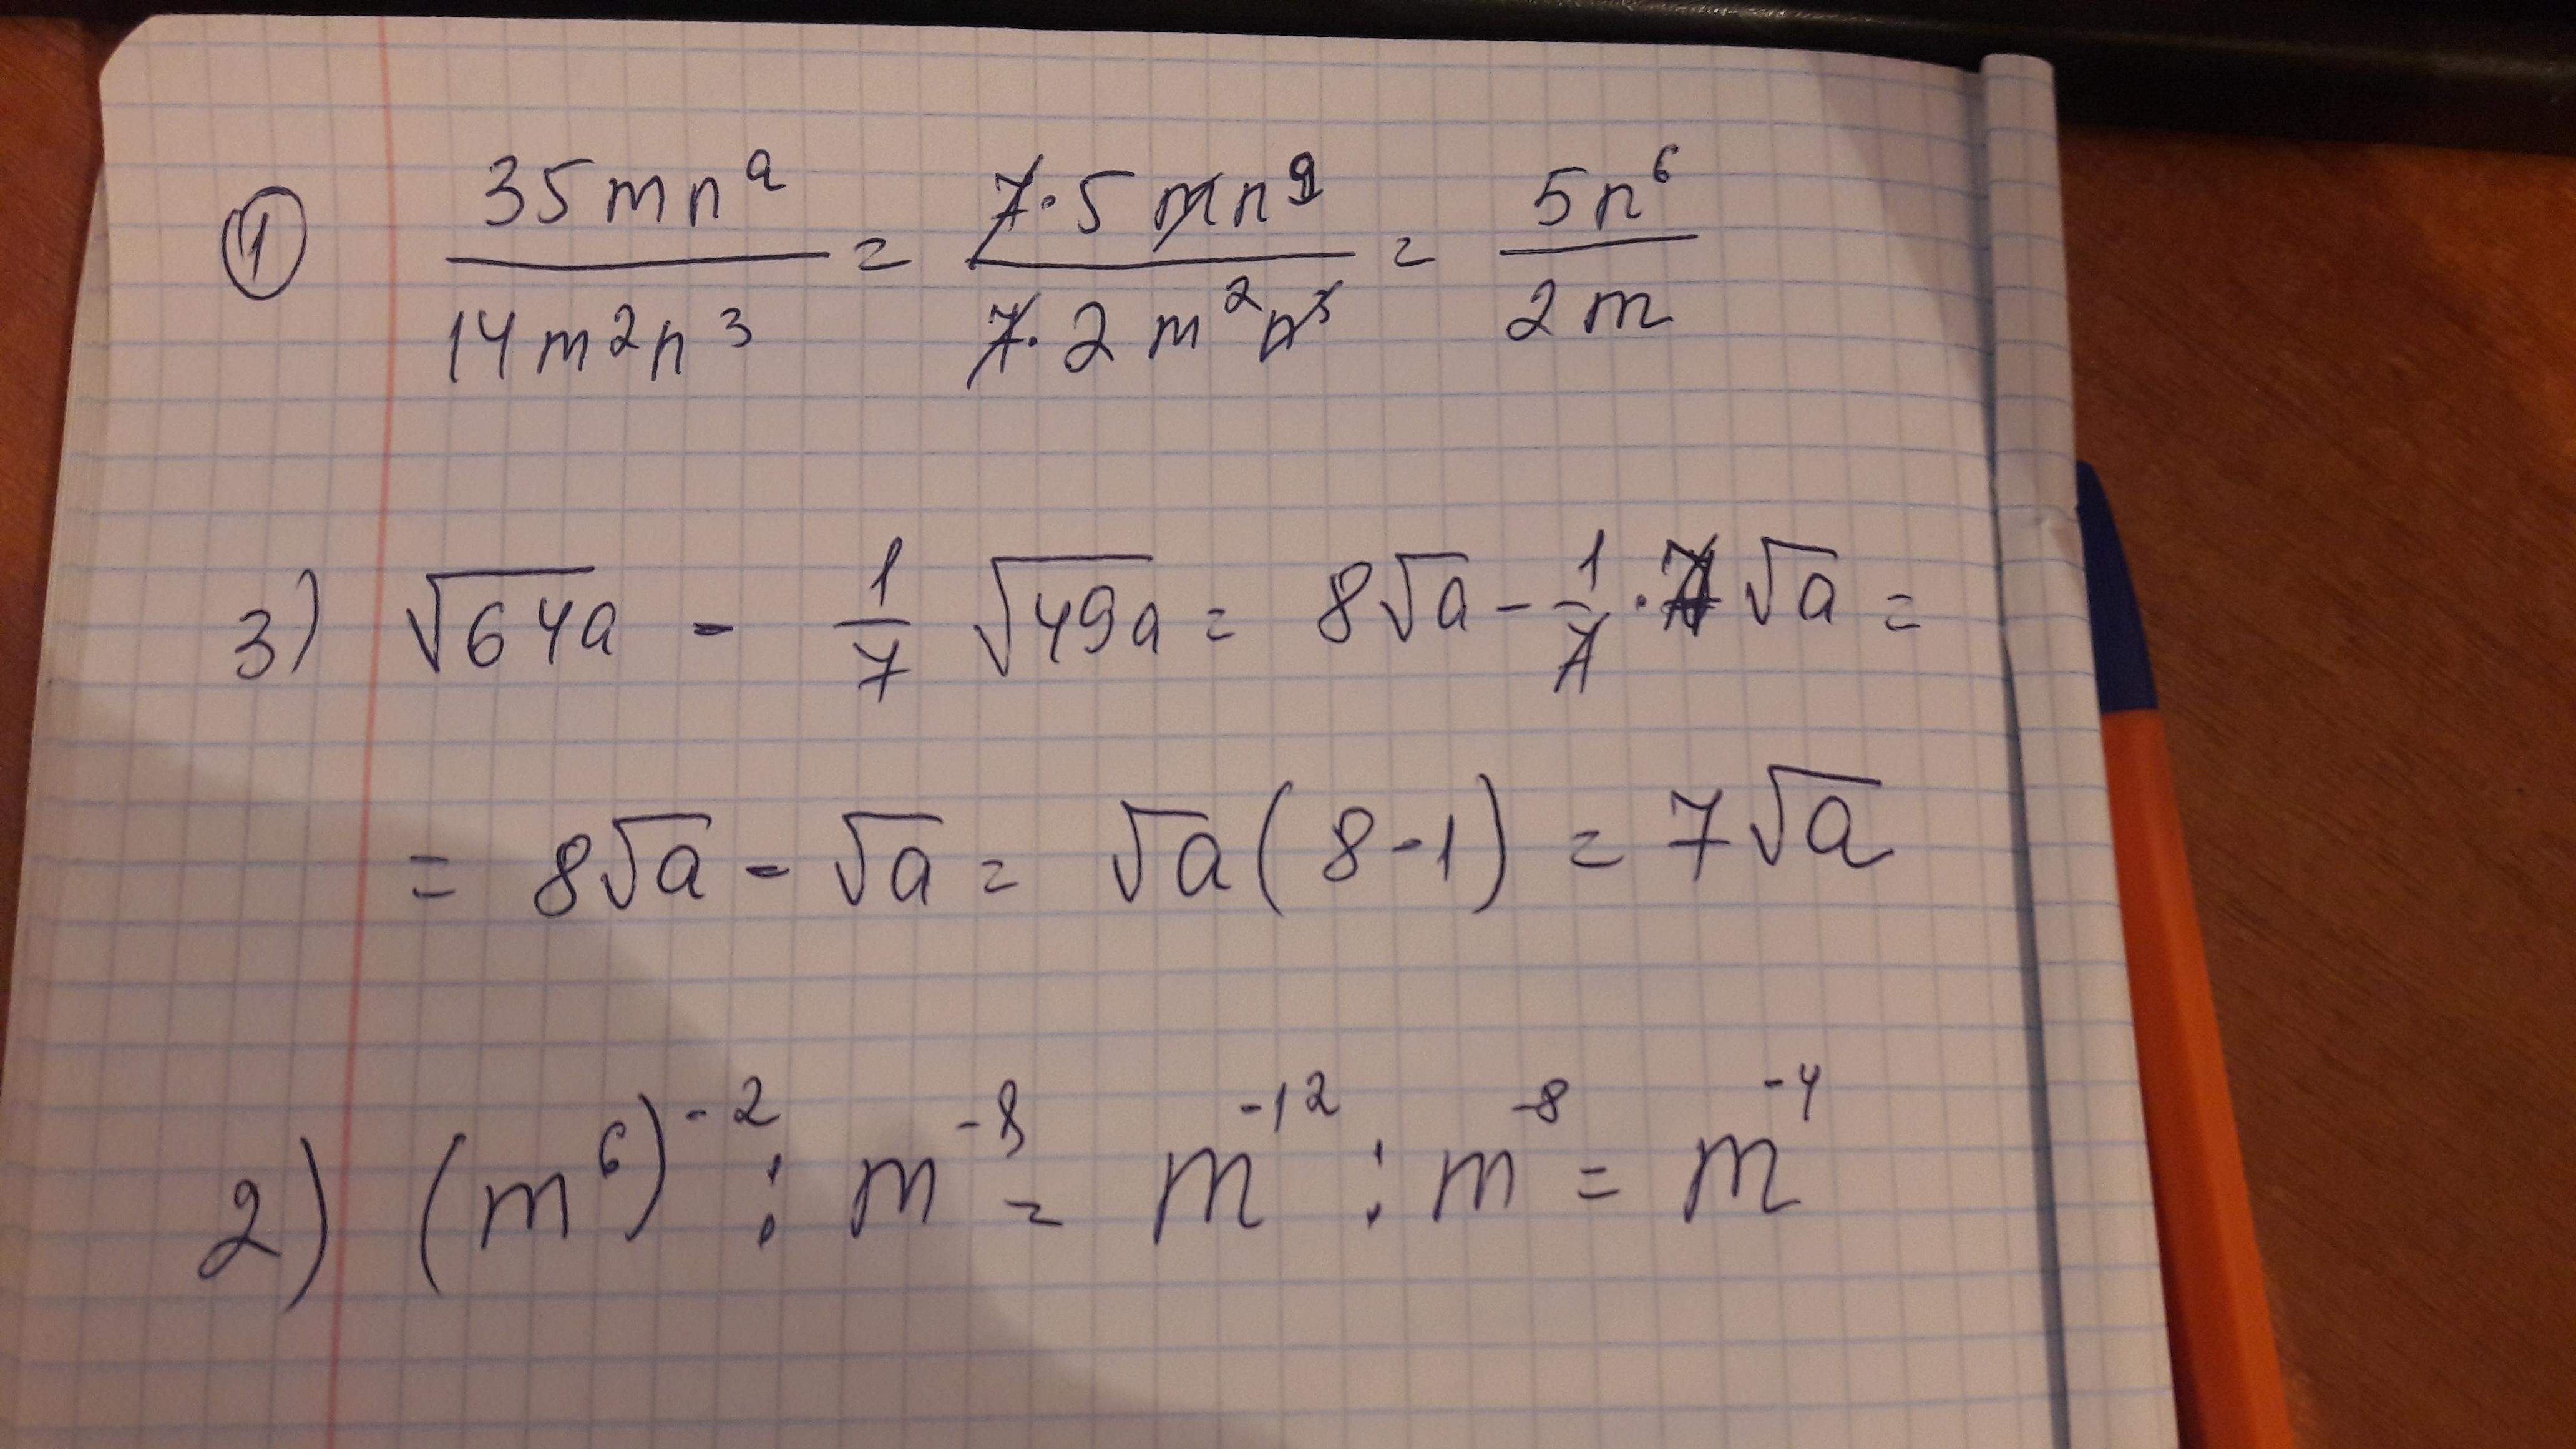 ① 35mn⁹/14m2n³ = 7·5mn⁹/7·2m²n³ = 5n⁶/2m
3) √64a - 1/7 √49a = 8√a - 1/7 · 7√a =
= 8√a - √a = √a(8-1) = 7√a
2) (m⁶)⁻² : m⁻⁸ = m⁻¹² : m⁻⁸ = m⁻⁴